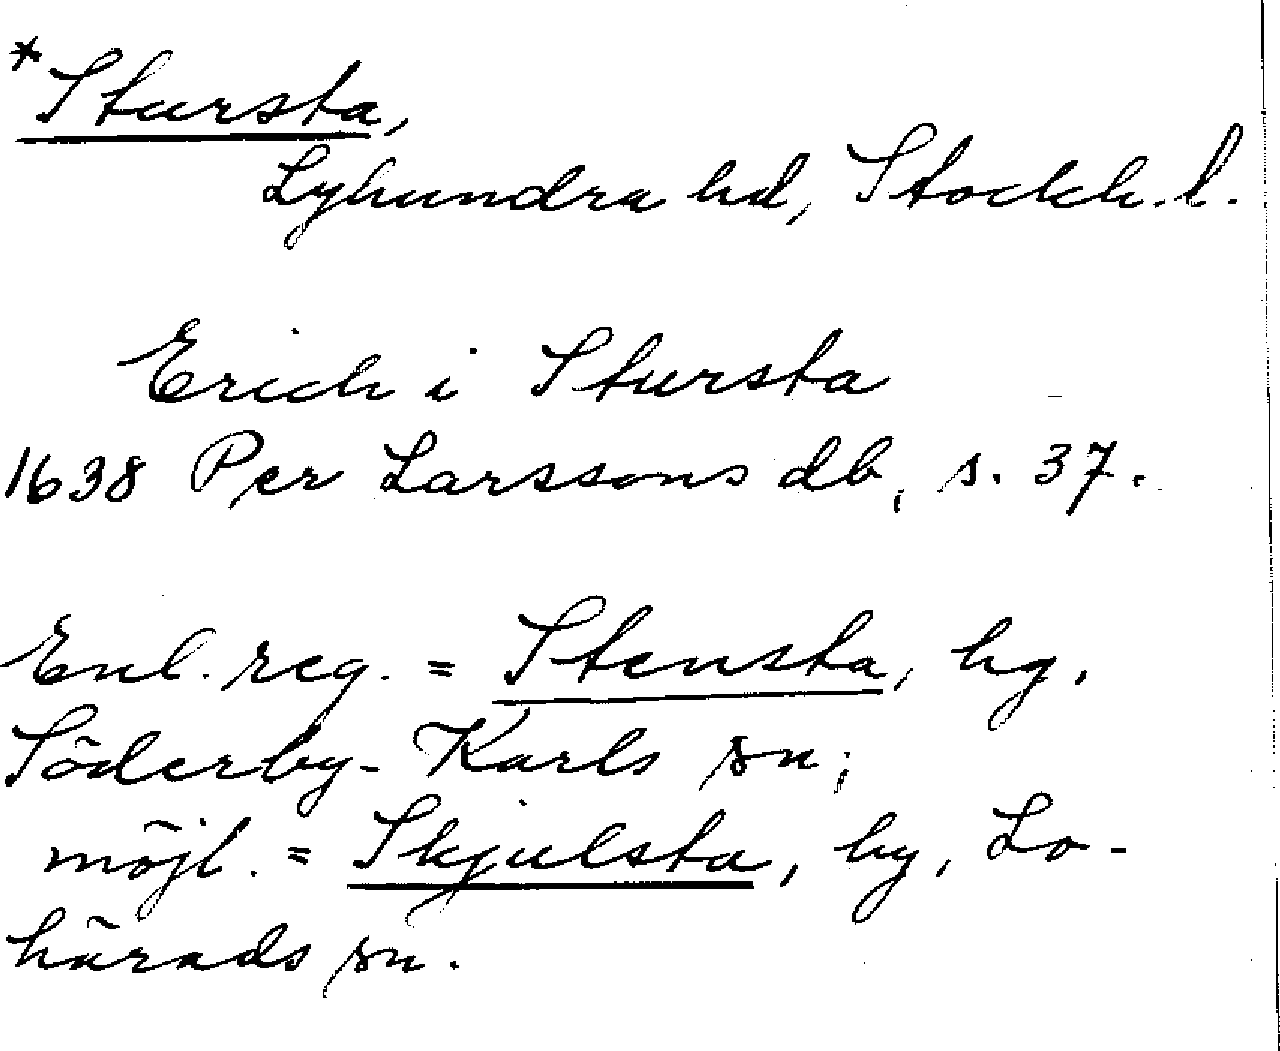 *Stursta,
Lyhundra hd, Stockh. l.
Erich i Stursta
1638 Per Larssons db, s. 37.
Enl. reg. = Stensta, hg,
Söderby-Karls sn;
möjl. = Skjulsta, by, Lo-
härads sn.